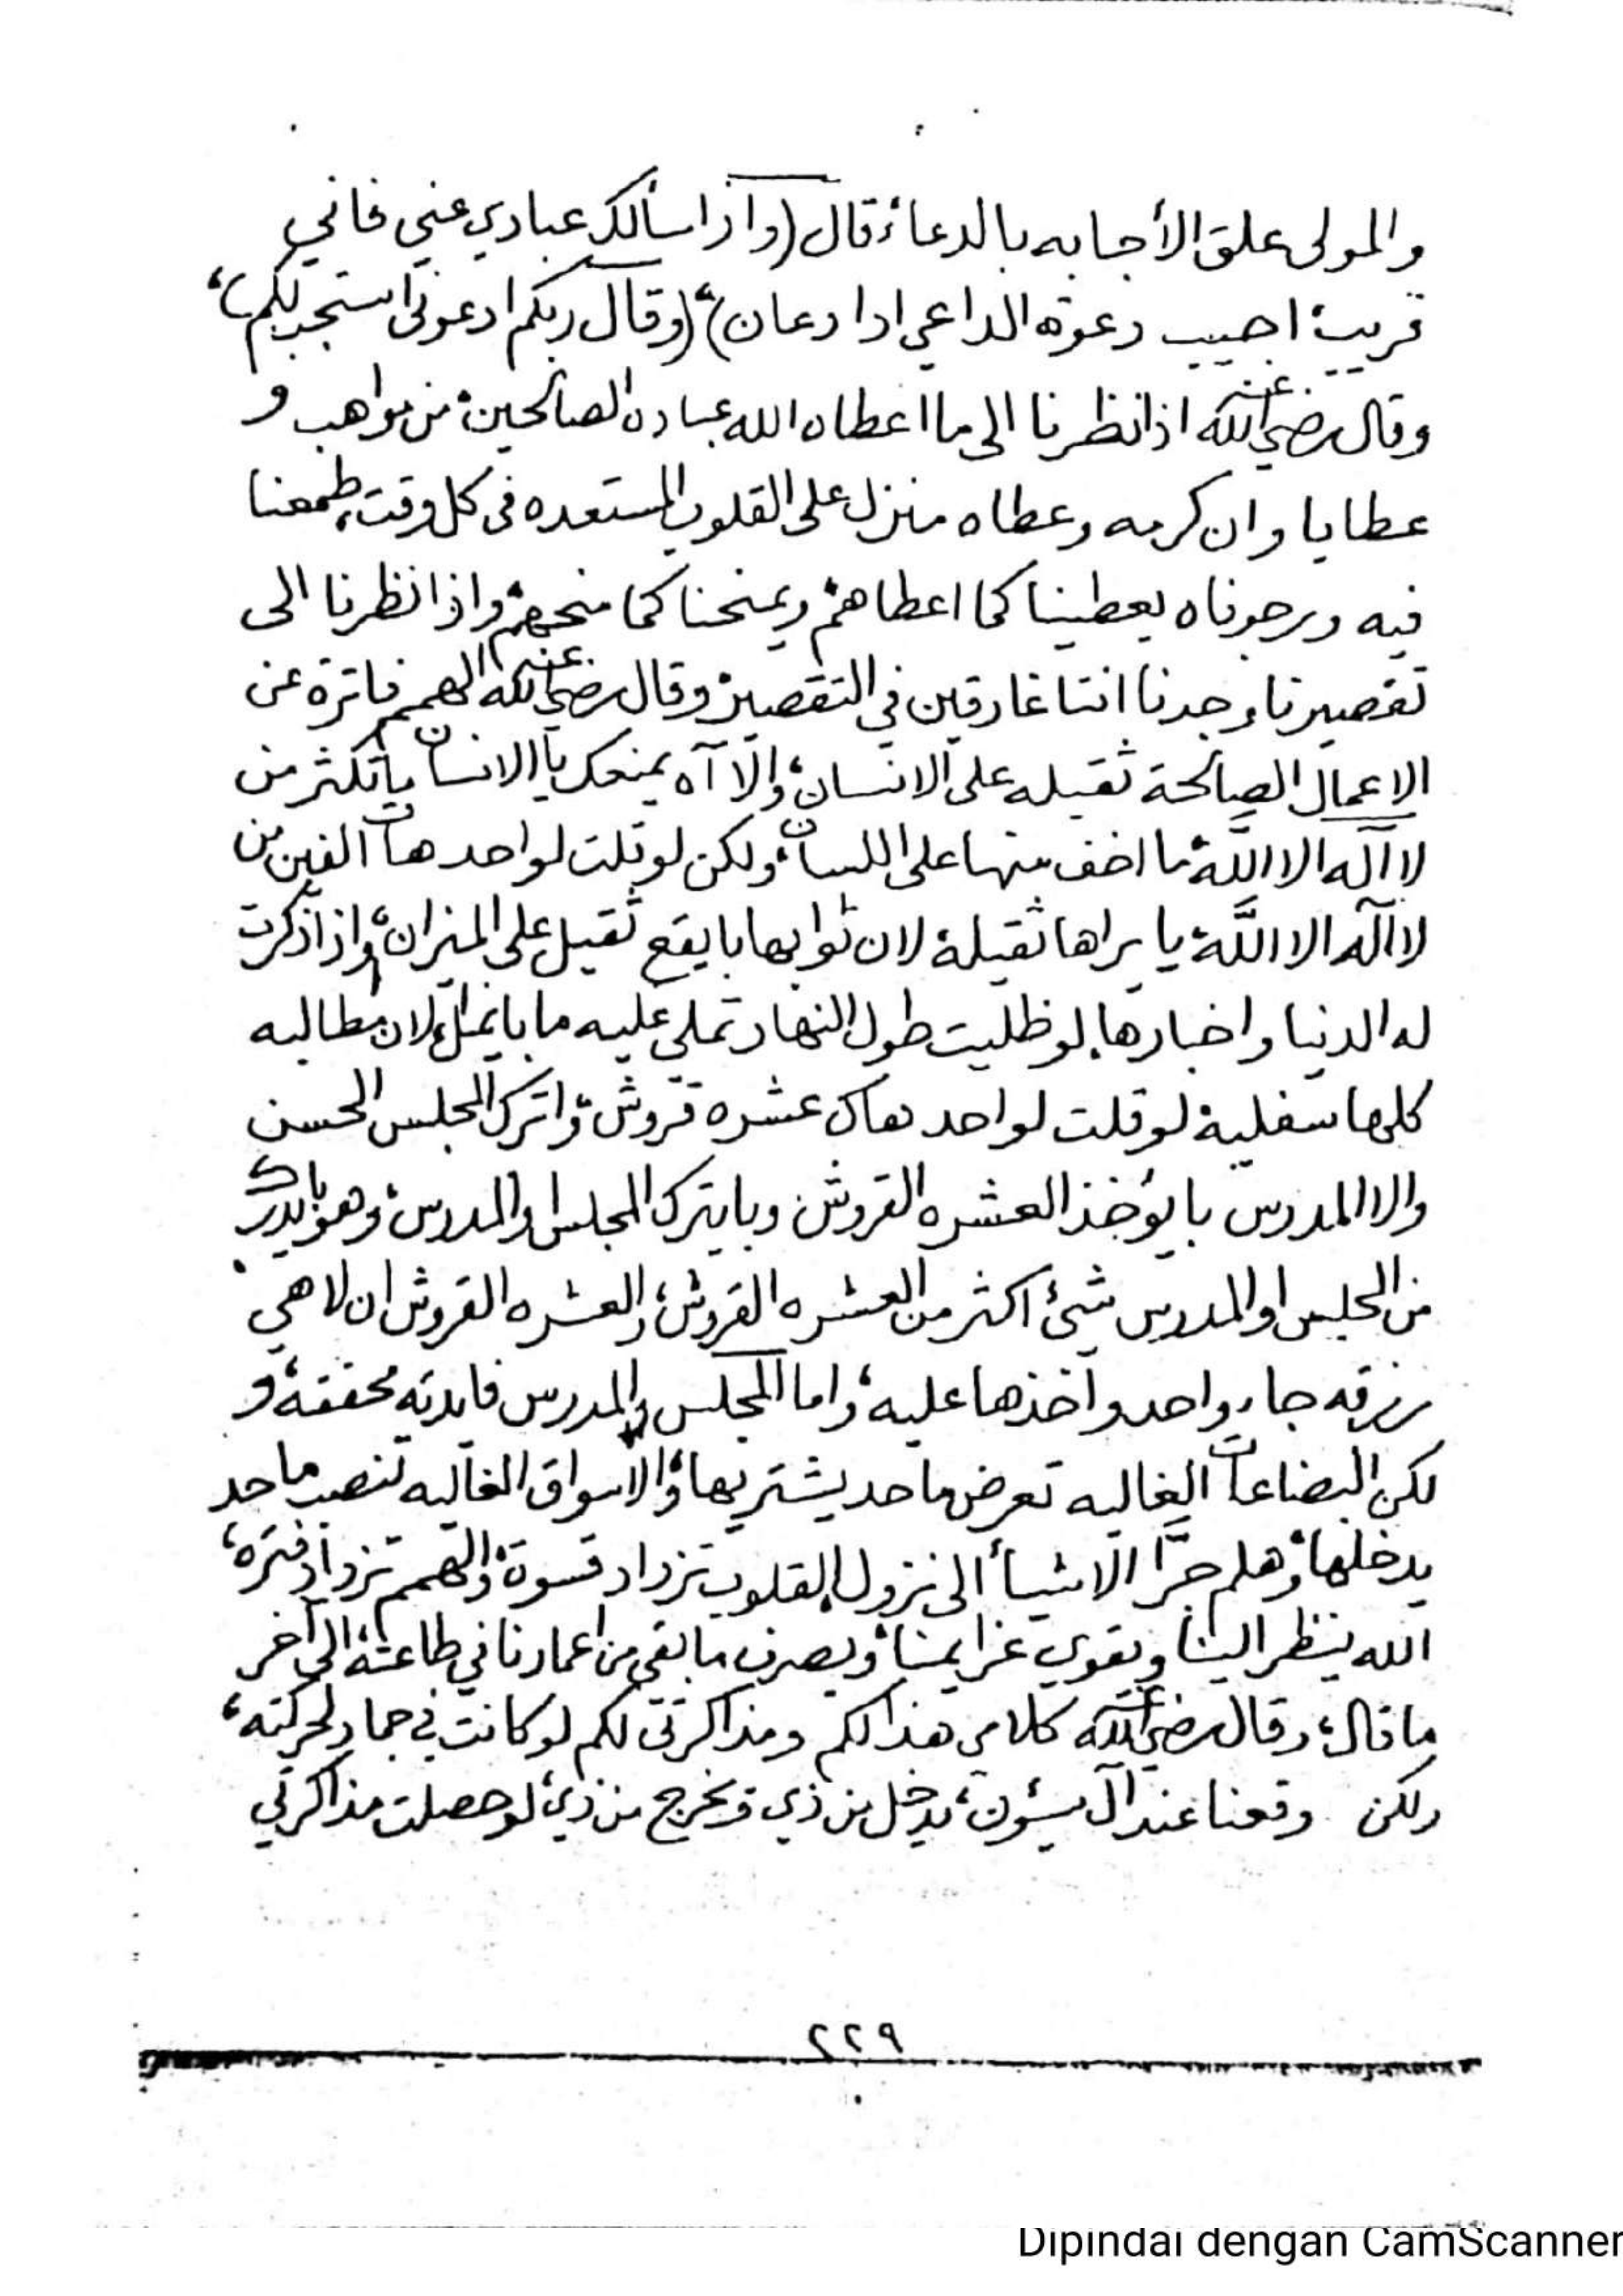 والمولى علق الأجابه بالدعاء، قال (واذا سألك عبادي عني فاني
قريب، اجيب دعوة الداعي اذا دعان)، (وقال ربكم ادعوني استجب لكم)،
وقال رضي الله عنه اذا نظرنا الى ما اعطاه الله عباده الصالحين، من مواهب و
عطايا وان كرمه وعطاه منزل على القلوب المستعده في كل وقت، طمعنا
فيه ورجوناه يعطينا كما اعطاهم، ويمنحنا كما منحهم، واذا نظرنا الى
تقصيرنا وجدنا اننا غارقين في التقصير، وقال رضي الله عنه الهمم فاترة عن
الاعمال الصالحة ثقيله على الانسان، والا آه يمنعك يا الانسان باتكثر من
لا آله الا الله، ما اخف منها على اللسان، ولكن لو قلت لواحد هات الفين من
لا آله الا الله، يا يراها ثقيلة، لان ثوابها بايقع ثقيل على الميزان، واذا ذكرت
له الدنيا واخبارها، لو ظليت طول النهار تملي عليه ما بايمل، لان مطالبه
كلها سفلية، لو قلت لواحد هاك عشره قروش، واترك المجلس الحسن
والا المدرس بايؤخذ العشره القروش وبايترك المجلس والمدرس، وهو بايدرك
من المجلس او المدرس شيئ اكثر من العشره القروش، والعشره القروش ان لا هي
رزقه جاء واحد وآخذها عليه، واما المجلس والمدرس فايدته محققة، و
لكن البضاعات الغاليه تعرض ما حد يشتريها، والاسواق الغاليه تنصب ما حد
يدخلها، وهلم جرّا الاشيأ الى نزول، القلوب تزداد قسوة، والهمم تزداد فترة،
الله ينظر الينا ويقوي عزايمنا، ويصرف ما بقي من اعمارنا في طاعته، الى آخر
ما قال، وقال رضي الله عنه كلامي هذا لكم ومذاكرتي لكم لو كانت في جماد لحركته،
ولكن وقعنا عند آل يسؤن، يدخل من ذي وتخرج من ذي، لو حصلت مذاكرتي
٢٢٩
Dipindai dengan CamScanner